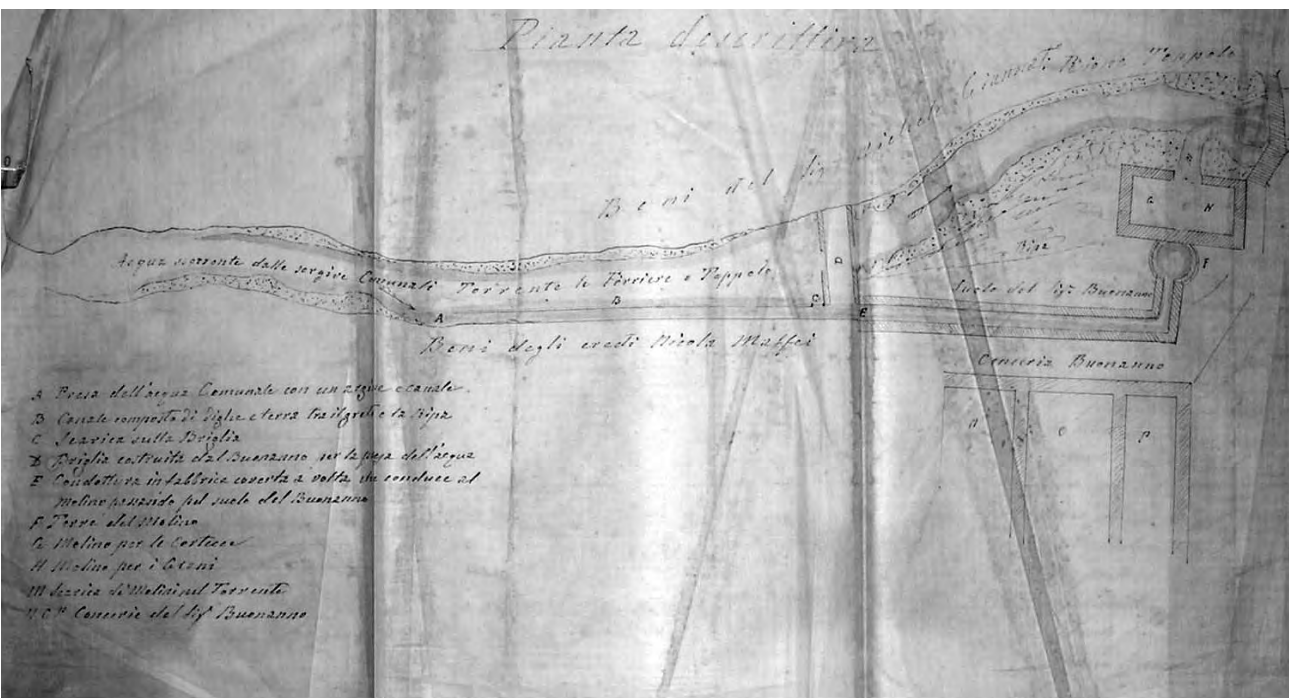 Pianta descrittiva
Beni del Sigr Michele Giannat. Rione Toppole
Acqua scorrente dalle sorgive Comunali Torrente le Ferriere o Toppole
Ripa
Suolo del Sigr Buonanno
Beni degli eredi Nicola Maffei
Conceria Buonanno
A
B
C
D
E
F
G
H
P
A Presa dell'acqua Comunale con un argine e canale
B Canale composto di dighe e terra tra il greto e la Ripa
C Scarica sulla Briglia
D Briglia costruita dal Buonanno per la presa dell'acqua
E Condottura in fabbrica coverta a volta che conduce al
Molino passando pel suolo del Buonanno
F Torre del Molino
G Molino per le Cortecce
H Molino per i Grani
M Scarica di Molini nel Torrente
Concerie del Sigr Buonanno